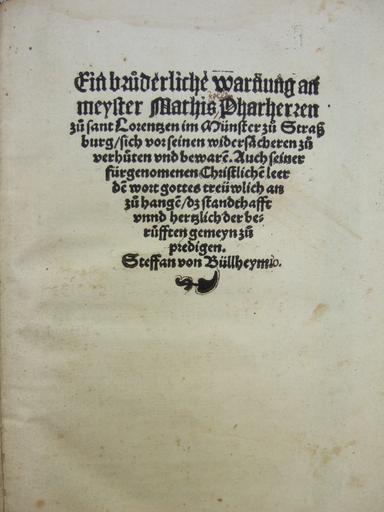 Ein brůderliche warnung an
meyster Mathis Pfarherren
zů sant Lorentzen im Münster zů Straß
burg/sich vor seinen widersächeren zů
verhůten vnd bewarē. Auch seiner
fürgenomenen Christlichē leer
dē wort gottes treüwlich an
zů hangē/dz standthafft
vnnd hertzlich der be-
růfften gemeyn zů
predigen.
Steffan von Büllheym